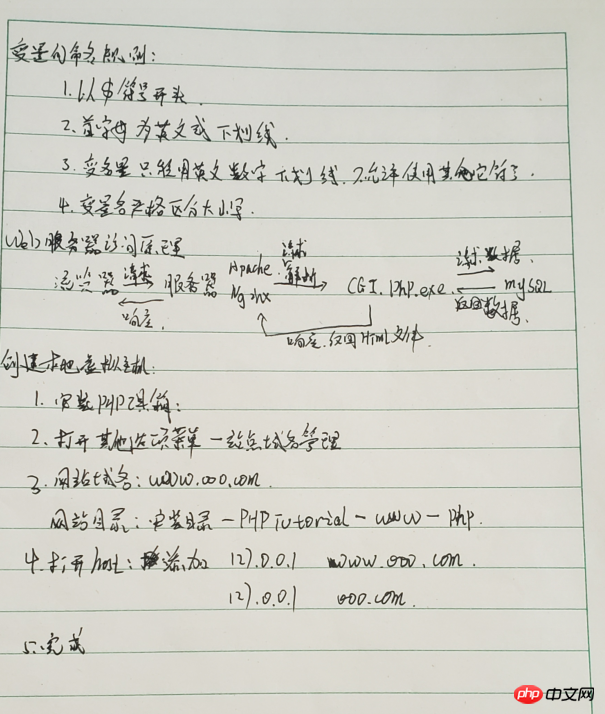 变量的命名规则：
1.以$符号开头
2.首字母为英文或下划线.
3.变名量只能用英文数字下划线.不允许使用其他它符号.
4.变量名严格区分大小写.
Web服务器访问原理
请求 请求 请求.数据.
浏览器 服务器 Apache Nginx 解析 CGI.php.exe. mySQL
响应 返回数据.
响应.返回Html文件.
创建本地虚拟主机:
1.安装PHP工具箱:
2.打开其他选项菜单-站点域名管理
3.网站域名:www.ooo.com.
网站目录:安装目录-PHPTutorial-www-php.
4.打开host:添加 127.0.0.1 www.ooo.com.
127.0.0.1 ooo.com.
5.完成
php 中文网